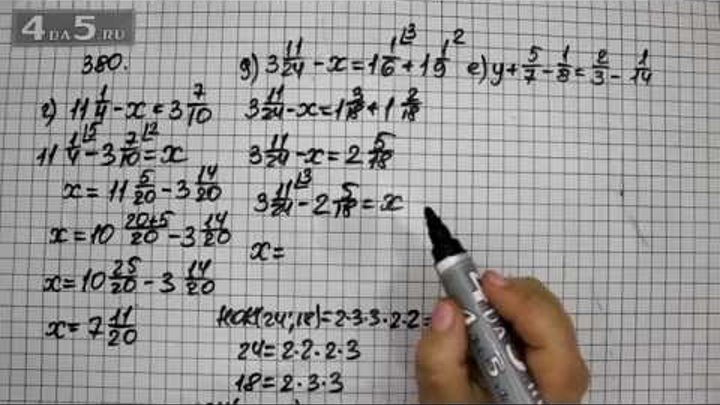 4 DA 5.RU
380.
г) 11 1/4 - x = 3 7/10
11 1/4 ⌊5 - 3 7/10 ⌊2 = x
x = 11 5/20 - 3 14/20
x = 10 20+5/20 - 3 14/20
x = 10 25/20 - 3 14/20
x = 7 11/20
д) 3 11/24 - x = 1 1/6 ⌊3 + 1 1/9 ⌊2
3 11/24 - x = 1 3/18 + 1 2/18
3 11/24 - x = 2 5/18
3 11/24 ⌊3 - 2 5/18 = x
x =
НОК(24;18)=2·3·3·2·2=
24=2·2·2·3
18=2·3·3
е) y + 5/7 - 1/8 = 2/3 - 1/14